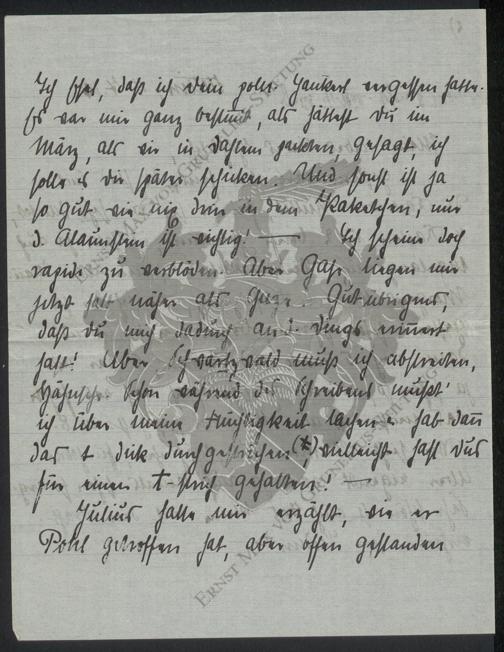 Ich Esel, daß ich dein poln. Zankerl vergessen hatte.
Es war mir ganz bestimmt, als hättest du im
März, als wir in Dahlem packten, gesagt, ich
solle es dir später schicken. Und sonst ist ja
so gut wie nix drin in dem Paketchen, nur
d. Alaunstein ist wichtig! — Ich scheine doch
rapide zu verblöden. Aber Gase liegen mir
jetzt halt näher als Gut übrigens,
daß du mich dadurch an d. Dings erinnert
hast! Aber Schwartzwald muß ich abstreiten,
Hähnchen. Schon während des Schreibens mußt'
ich über meine Flüchtigkeit lachen u. hab dann
das t dick durchgestrichen (t) vielleicht hast Du's
für einen t-strich gehalten! —
Julius hatte mir erzählt, wie er
Pohl getroffen hat, aber offen gestanden
ERNST MAX VON GRUNELIUS-STIFTUNG
ERNST MAX VON GRUNELIUS-STIFTUNG